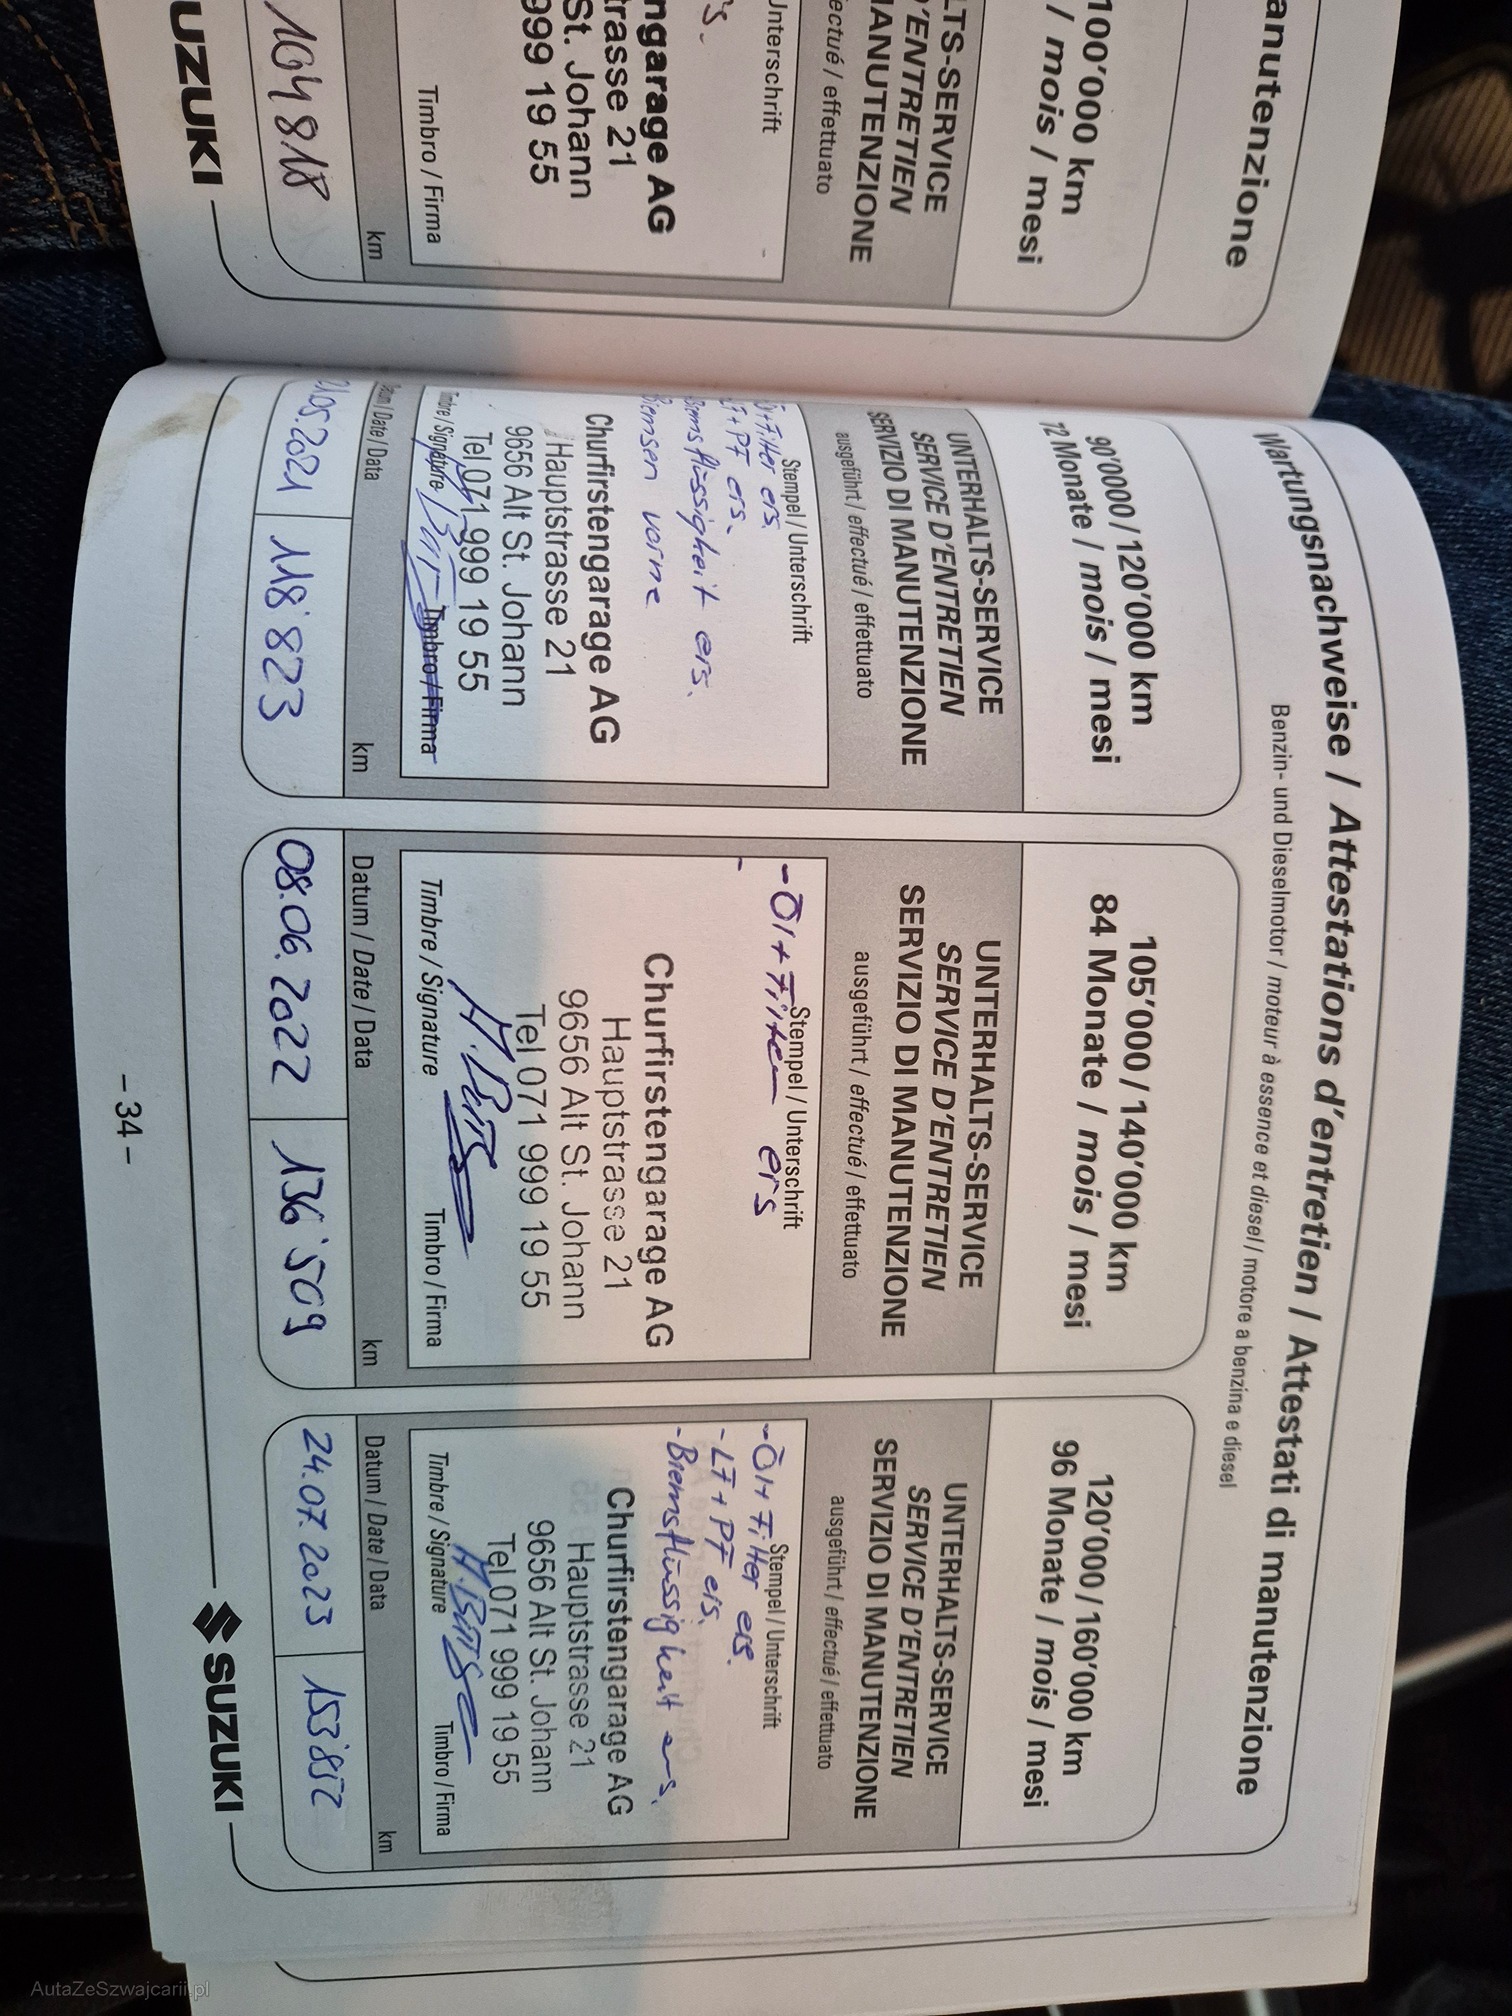 anutenzione
100'000 km
/ mois / mesi
LTS-SERVICE
D'ENTRETIEN
MANUTENZIONE
ectué / effettuato
Unterschrift
s.
ngarage AG
trasse 21
St. Johann
999 19 55
Timbro / Firma
km
104 818
UZUKI
Wartungsnachweise / Attestations d'entretien / Attestati di manutenzione
Benzin- und Dieselmotor / moteur à essence et diesel / motore a benzina e diesel
90'000 / 120'000 km
72 Monate / mois / mesi
UNTERHALTS-SERVICE
SERVICE D'ENTRETIEN
SERVIZIO DI MANUTENZIONE
ausgeführt / effectué / effettuato
Stempel / Unterschrift
Öl+Filter ers.
LF+PF ers.
Bremsflüssigkeit ers.
Bremsen vorne
Churfirstengarage AG
Hauptstrasse 21
9656 Alt St. Johann
Tel 071 999 19 55
Timbre / Signature Timbro / Firma
Datum / Date / Data km
05.2021 118'823
105'000 / 140'000 km
84 Monate / mois / mesi
UNTERHALTS-SERVICE
SERVICE D'ENTRETIEN
SERVIZIO DI MANUTENZIONE
ausgeführt / effectué / effettuato
Stempel / Unterschrift
-Öl+Filter ers
-
Churfirstengarage AG
Hauptstrasse 21
9656 Alt St. Johann
Tel 071 999 19 55
Timbre / Signature Timbro / Firma
Datum / Date / Data km
08.06.2022 136'509
120'000 / 160'000 km
96 Monate / mois / mesi
UNTERHALTS-SERVICE
SERVICE D'ENTRETIEN
SERVIZIO DI MANUTENZIONE
ausgeführt / effectué / effettuato
Stempel / Unterschrift
-Öl+Filter ers.
-LF+PF ers.
-Bremsflüssigkeit ers.
Churfirstengarage AG
Hauptstrasse 21
9656 Alt St. Johann
Tel 071 999 19 55
Timbre / Signature Timbro / Firma
Datum / Date / Data km
24.07.2023 153'852
– 34 –
SUZUKI
AutaZeSzwajcarii.pl